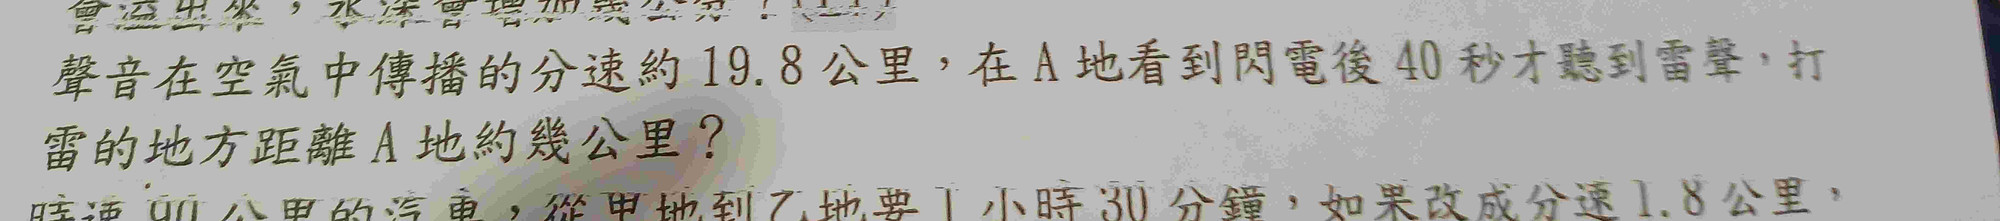 會溢出來，水深會增加幾公分？
聲音在空氣中傳播的分速約 19.8 公里，在 A 地看到閃電後 40 秒才聽到雷聲，打
雷的地方距離 A 地約幾公里？
時速 90 公里的汽車，從甲地到乙地要 1 小時 30 分鐘，如果改成分速 1.8 公里，